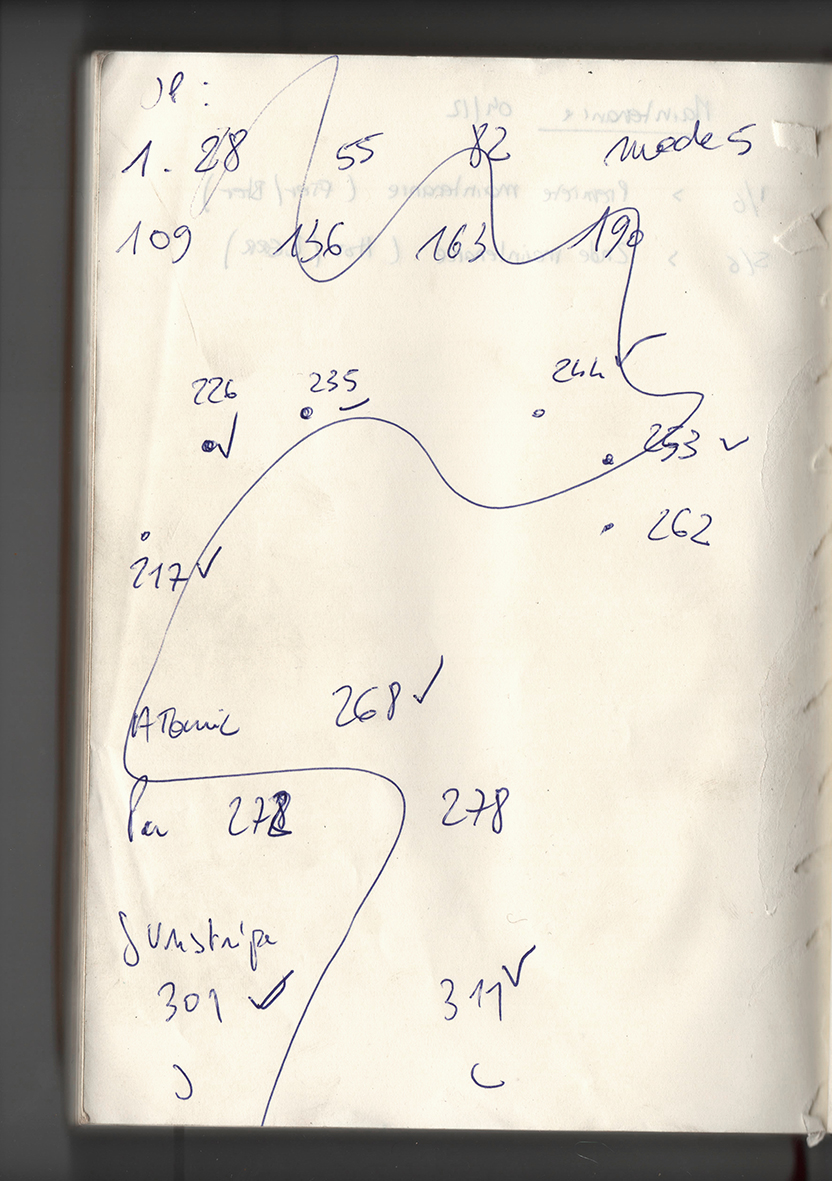 JP :
1. 28 55 82 mode 5
109 136 163 190
226 235 244 ✓
✓ 253 ✓
262
217 ✓
ATomic 268 ✓
Par 272 278
Sunstripe
301 ✓ 311 ✓